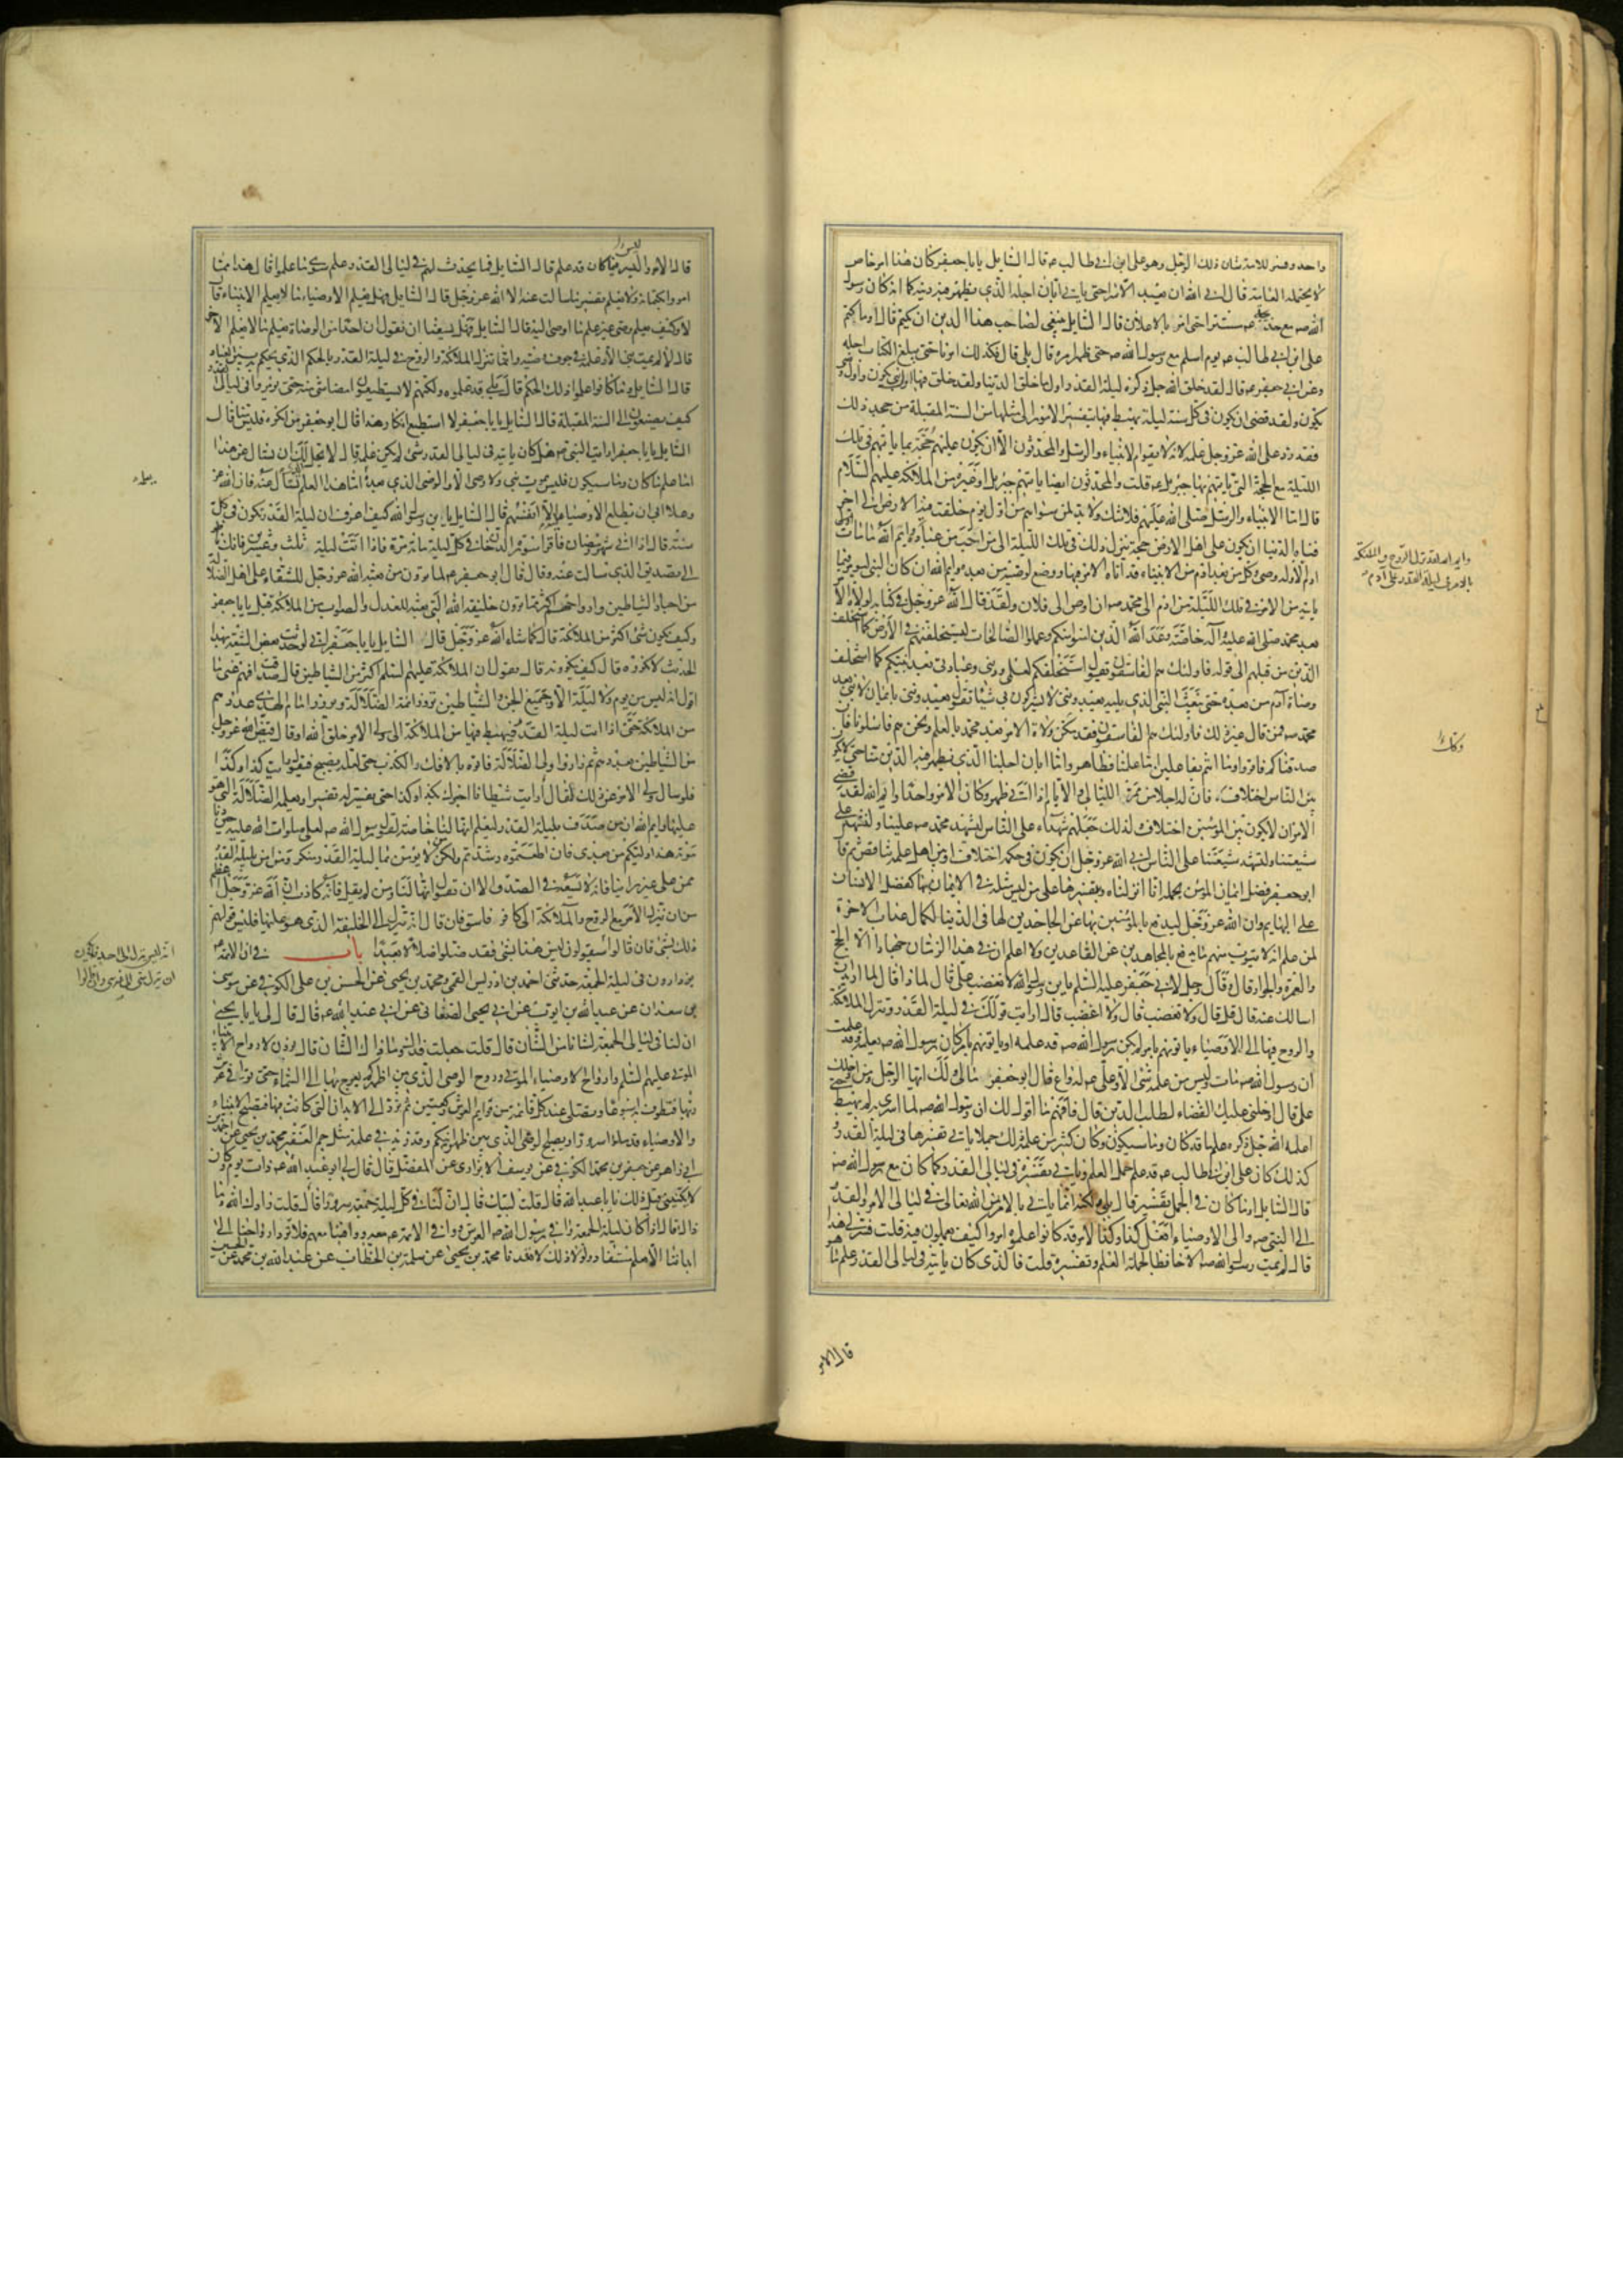 واحد وفسر للامة شان ذلك الرجل وهو على ابن ابي طالب ع قال السايل يا با جعفر كان هذا امر خاص
لا يحتمله العامة قال ابى الله ان يعبد الا سرا حتى ياتي ابان اجله الذي يظهر فيه دينه كما انه كان رسول
الله ص مع خديجة مستترا حتى امر بالاعلان قال السايل ينبغي لصاحب هذا الدين ان يكتم قال اوما كتم
على ابن ابي طالب ع يوم اسلم مع رسول الله ص حتى ظهر امره قال بلى قال فكذلك امرنا حتى يبلغ الكتاب اجله
وعن ابي جعفر ع قال لقد خلق الله جل ذكره ليلة القدر اول ما خلق الدنيا ولقد خلق فيها اول نبي يكون واول وصي
يكون ولقد قضى ان يكون في كل سنة ليلة يهبط فيها بتفسير الامور الى مثلها من السنة المقبلة من جحد ذلك
فقد رد على الله عز وجل علمه لانه لا يقوم الانبياء والرسل والمحدثون الا ان يكون عليهم حجة بما ياتيهم في تلك
الليلة مع الحجة التي ياتيهم بها جبريل ع قلت والمحدثون ايضا ياتيهم جبريل او غيره من الملائكة عليهم السلام
قال اما الانبياء والرسل صلى الله عليهم فلا شك ولا بد لمن سواهم من اول يوم خلقت فيه الارض الى اخر
فناء الدنيا ان يكون على اهل الارض حجة ينزل ذلك في تلك الليلة الى من احب من عباده وايم الله ما مات
ادم الا وله وصي وكل من بعد ادم من الانبياء قد اتاه الامر فيها ووضع لوصيه من بعده وايم الله ان كان النبي ليومر فيما
ياتيه من الامر في تلك الليلة من ادم الى محمد ص ان اوص الى فلان ولقد قال الله عز وجل في كتابه لولاة الامر
بعد محمد صلى الله عليه وآله خاصة وعد الله الذين امنوا منكم وعملوا الصالحات ليستخلفنهم في الارض كما استخلف
الذين من قبلهم الى قوله فاولئك هم الفاسقون يقول استخلفكم لعلمي وديني وعبادتي بعد نبيكم كما استخلف
وصاة آدم من بعده حتى يبعث النبي الذي يليه يعبدونني لا يشركون بي شيئا يقول يعبدونني بايمان لا نبي بعد
محمد ص فمن قال غير ذلك فاولئك هم الفاسقون فقد مكن ولاة الامر بعد محمد بالعلم ونحن هم فاسئلونا فان
صدقناكم فاقروا وما انتم بفاعلين اما علمنا فظاهر واما ابان اجلنا الذي يظهر فيه الدين منا حتى لا يكون
بين الناس اختلاف فان له اجلا من ممر الليالي والايام اذا اتى ظهر وكان الامر واحدا وايم الله لقد قضى
الامر ان لا يكون بين المؤمنين اختلاف لذلك جعلهم شهداء على الناس ليشهد محمد ص علينا ولنشهد على
شيعتنا ولتشهد شيعتنا على الناس ابى الله عز وجل ان يكون في حكمه اختلاف او بين اهل علمه تناقض ثم قال
ابو جعفر فضل ايمان المؤمن بجمله انا انزلناه وبتفسيرها على من ليس مثله في الايمان بها كفضل الانسان
على البهايم وان الله عز وجل ليدفع بالمؤمنين بها عن الجاحدين لها في الدنيا لكمال عذاب الاخرة
لمن علم انه لا يتوب منهم ما يدفع بالمجاهدين عن القاعدين ولا اعلم ان في هذا الزمان جهادا الا الحج
والعمرة والجوار قال وقال رجل لابي جعفر عليه السلم يا بن رسول الله لا تغضب علي قال لماذا قال لما اريد
اسالك عنه قال قل قال ولا تغضب قال ولا اغضب قال ارايت قولك في ليلة القدر وتنزل الملائكة
والروح فيها الى الاوصياء ياتونهم بامر لم يكن رسول الله ص قد علمه او ياتونهم بامر كان رسول الله ص يعلمه وقد علمت
ان رسول الله ص مات وليس من علمه شئ الا وعلي ع له واع قال ابو جعفر ما لي ولك ايها الرجل ومن ادخلك
علي قال ادخلني عليك القضاء لطلب الدين قال فافهم ما اقول لك ان رسول الله ص لما اسري به لم يهبط حتى
اعلمه الله جل ذكره علم ما قد كان وما سيكون وكان كثير من علمه ذلك جملا ياتي تفسيرها في ليلة القدر و
كذلك كان على ابن ابي طالب ع قد علم جمل العلم وياتي تفسيره في ليالى القدر كما كان مع رسول الله ص
قال السايل اوما كان في الجمل تفسير قال بلى ولكنه انما ياتي بالامر من الله تعالى في ليالى الامر والقدر
الى النبي ص والى الاوصياء افعل كذا وكذا لامر قد كانوا علموه امروا كيف يعملون فيه قلت فسر لي هذا
قال لم يمت رسول الله ص الا حافظا لجملة العلم وتفسيره قلت فالذي كان ياتيه في ليالى القدر علم ما هو
قال الامر
وايم الله لقد نزل الروح والملئكة
بالامر في ليلة القدر على آدم
وكان
قال الامر واليسر فيما كان قد علم قال السايل فما يحدث لهم في ليالى القدر علم سوى ما علموا قال هذا مما
امروا بكتمانه ولا يعلم تفسير ما سالت عنه الا الله عز وجل قال السايل فهل يعلم الاوصياء ما لا يعلم الانبياء قال
لا وكيف يعلم وصي غير علم ما اوصي اليه قال السايل فهل يسعنا ان نقول ان احدا من الوصاة يعلم ما لا يعلم الاخر
قال لا لم يمت نبي الا وعلمه في جوف وصيه وانما تنزل الملائكة والروح في ليلة القدر بالحكم الذي يحكم به بين العباد
قال السايل وما كانوا علموا ذلك الحكم قال بلى قد علموه ولكنهم لا يستطيعون امضاء شئ منه حتى يومروا في ليالى القدر
كيف يصنعون الى السنة المقبلة قال السايل يا با جعفر لا استطيع انكار هذا قال ابو جعفر من انكره فليس منا قال
السايل يا با جعفر ارايت النبي ص هل كان ياتيه في ليالى القدر شئ لم يكن علمه قال لا يحل لك ان تسال عن هذا
اما علم ما كان وما سيكون فليس يموت نبي ولا وصى الا والوصى الذي بعده اما هذا العلم الذي تسال عنه فان الله عز
وعلا ابى ان يطلع الاوصياء عليه الا انفسهم قال السايل يا بن رسول الله كيف اعرف ان ليلة القدر تكون في كل
سنة قال اذا اتى شهر رمضان فاقرا سورة الدخان في كل ليلة مائة مرة فاذا اتت ليلة ثلث وعشرين فانك ناظر
الى تصديق الذي سالت عنه وقال قال ابو جعفر ع لما ترون من بعثه الله عز وجل للشقاء على اهل الضلالة
من اجناد الشياطين وازواجهم اكثر مما ترون خليفة الله الذي بعثه للعدل والصواب من الملائكة قيل يا با جعفر
وكيف يكون شئ اكثر من الملائكة قال كما شاء الله عز وجل قال السايل يا با جعفر اني لو حدثت بعض الشيعة بهذا
الحديث لانكروه قال كيف ينكرونه قال يقولون ان الملائكة عليهم السلم اكثر من الشياطين قال صدقت افهم عني ما
اقول انه ليس من يوم ولا ليلة الا وجميع الجن والشياطين تزور ائمة الضلالة ويزور امام الهدى عددهم
من الملائكة حتى اذا اتت ليلة القدر فيهبط فيها من الملائكة الى ولي الامر خلق الله او قال قيض الله عز وجل
من الشياطين بعددهم ثم زاروا ولي الضلالة فاتوه بالافك والكذب حتى لعله يصبح فيقول رايت كذا وكذا
فلو سال ولي الامر عن ذلك لقال رايت شيطانا اخبرك بكذا وكذا حتى يفسر له تفسيرا ويعلمه الضلالة التي هو
عليها وايم الله ان من صدق بليلة القدر ليعلم انها لنا خاصة لقول رسول الله ص لعلي صلوات الله عليه حين دنا
موته هذا وليكم من بعدي فان اطعتموه رشدتم ولكن من لا يؤمن بما في ليلة القدر منكر ومن امن بليلة القدر
ممن على غير راينا فانه لا يسعه في الصدق الا ان يقول انها لنا ومن لم يقل فانه كاذب ان الله عز وجل اعظم
من ان ينزل الامر مع الروح والملائكة الى كافر فاسق فان قال انه ينزل الى الخليفة الذي هو عليها فليس قولهم
ذلك بشئ فان قالوا سيقولون ليس هذا بشئ فقد ضلوا ضلالا بعيدا باب في ان الائمة ع
يزدادون في ليلة الجمعة حدثني احمد بن ادريس القمي ومحمد بن يحيى عن الحسن بن على الكوفي عن موسى
بن سعدان عن عبد الله بن ايوب عن ابي يحيى الصنعاني عن ابي عبد الله ع قال قال لى يا با يحيى
ان لنا في ليالى الجمعة لشانا من الشان قال قلت جعلت فداك وما ذاك الشان قال يؤذن لارواح الانبياء
الموتى عليهم السلم وارواح الاوصياء الموتى وروح الوصى الذي بين اظهركم يعرج بها الى السماء حتى توافي عرش
ربها فتطوف به اسبوعا وتصلى عند كل قائمة من قوايم العرش ركعتين ثم ترد الى الابدان التى كانت فيها فتصبح الانبياء
والاوصياء قد ملؤا سرورا ويصبح الوصى الذي بين ظهرانيكم وقد زيد في علمه مثل جم الغفير محمد بن يحيى عن احمد بن
ابي زاهر عن جعفر بن محمد الكوفي عن يوسف الابزاري عن المفضل قال قال لي ابو عبد الله ع ذات يوم وكان
لا يكنيني قبل ذلك يا با عبد الله قال قلت لبيك قال ان لنا في كل ليلة جمعة سرورا قال قلت زادك الله وما
ذاك قال اذا كان ليلة الجمعة وافى رسول الله ص العرش ووافى الائمة ع معه ووافينا معهم فلا ترد ارواحنا الى
ابداننا الا بعلم مستفاد ولولا ذلك لانفدنا محمد بن يحيى عن سلمة بن الخطاب عن عبد الله بن محمد عن الحسين